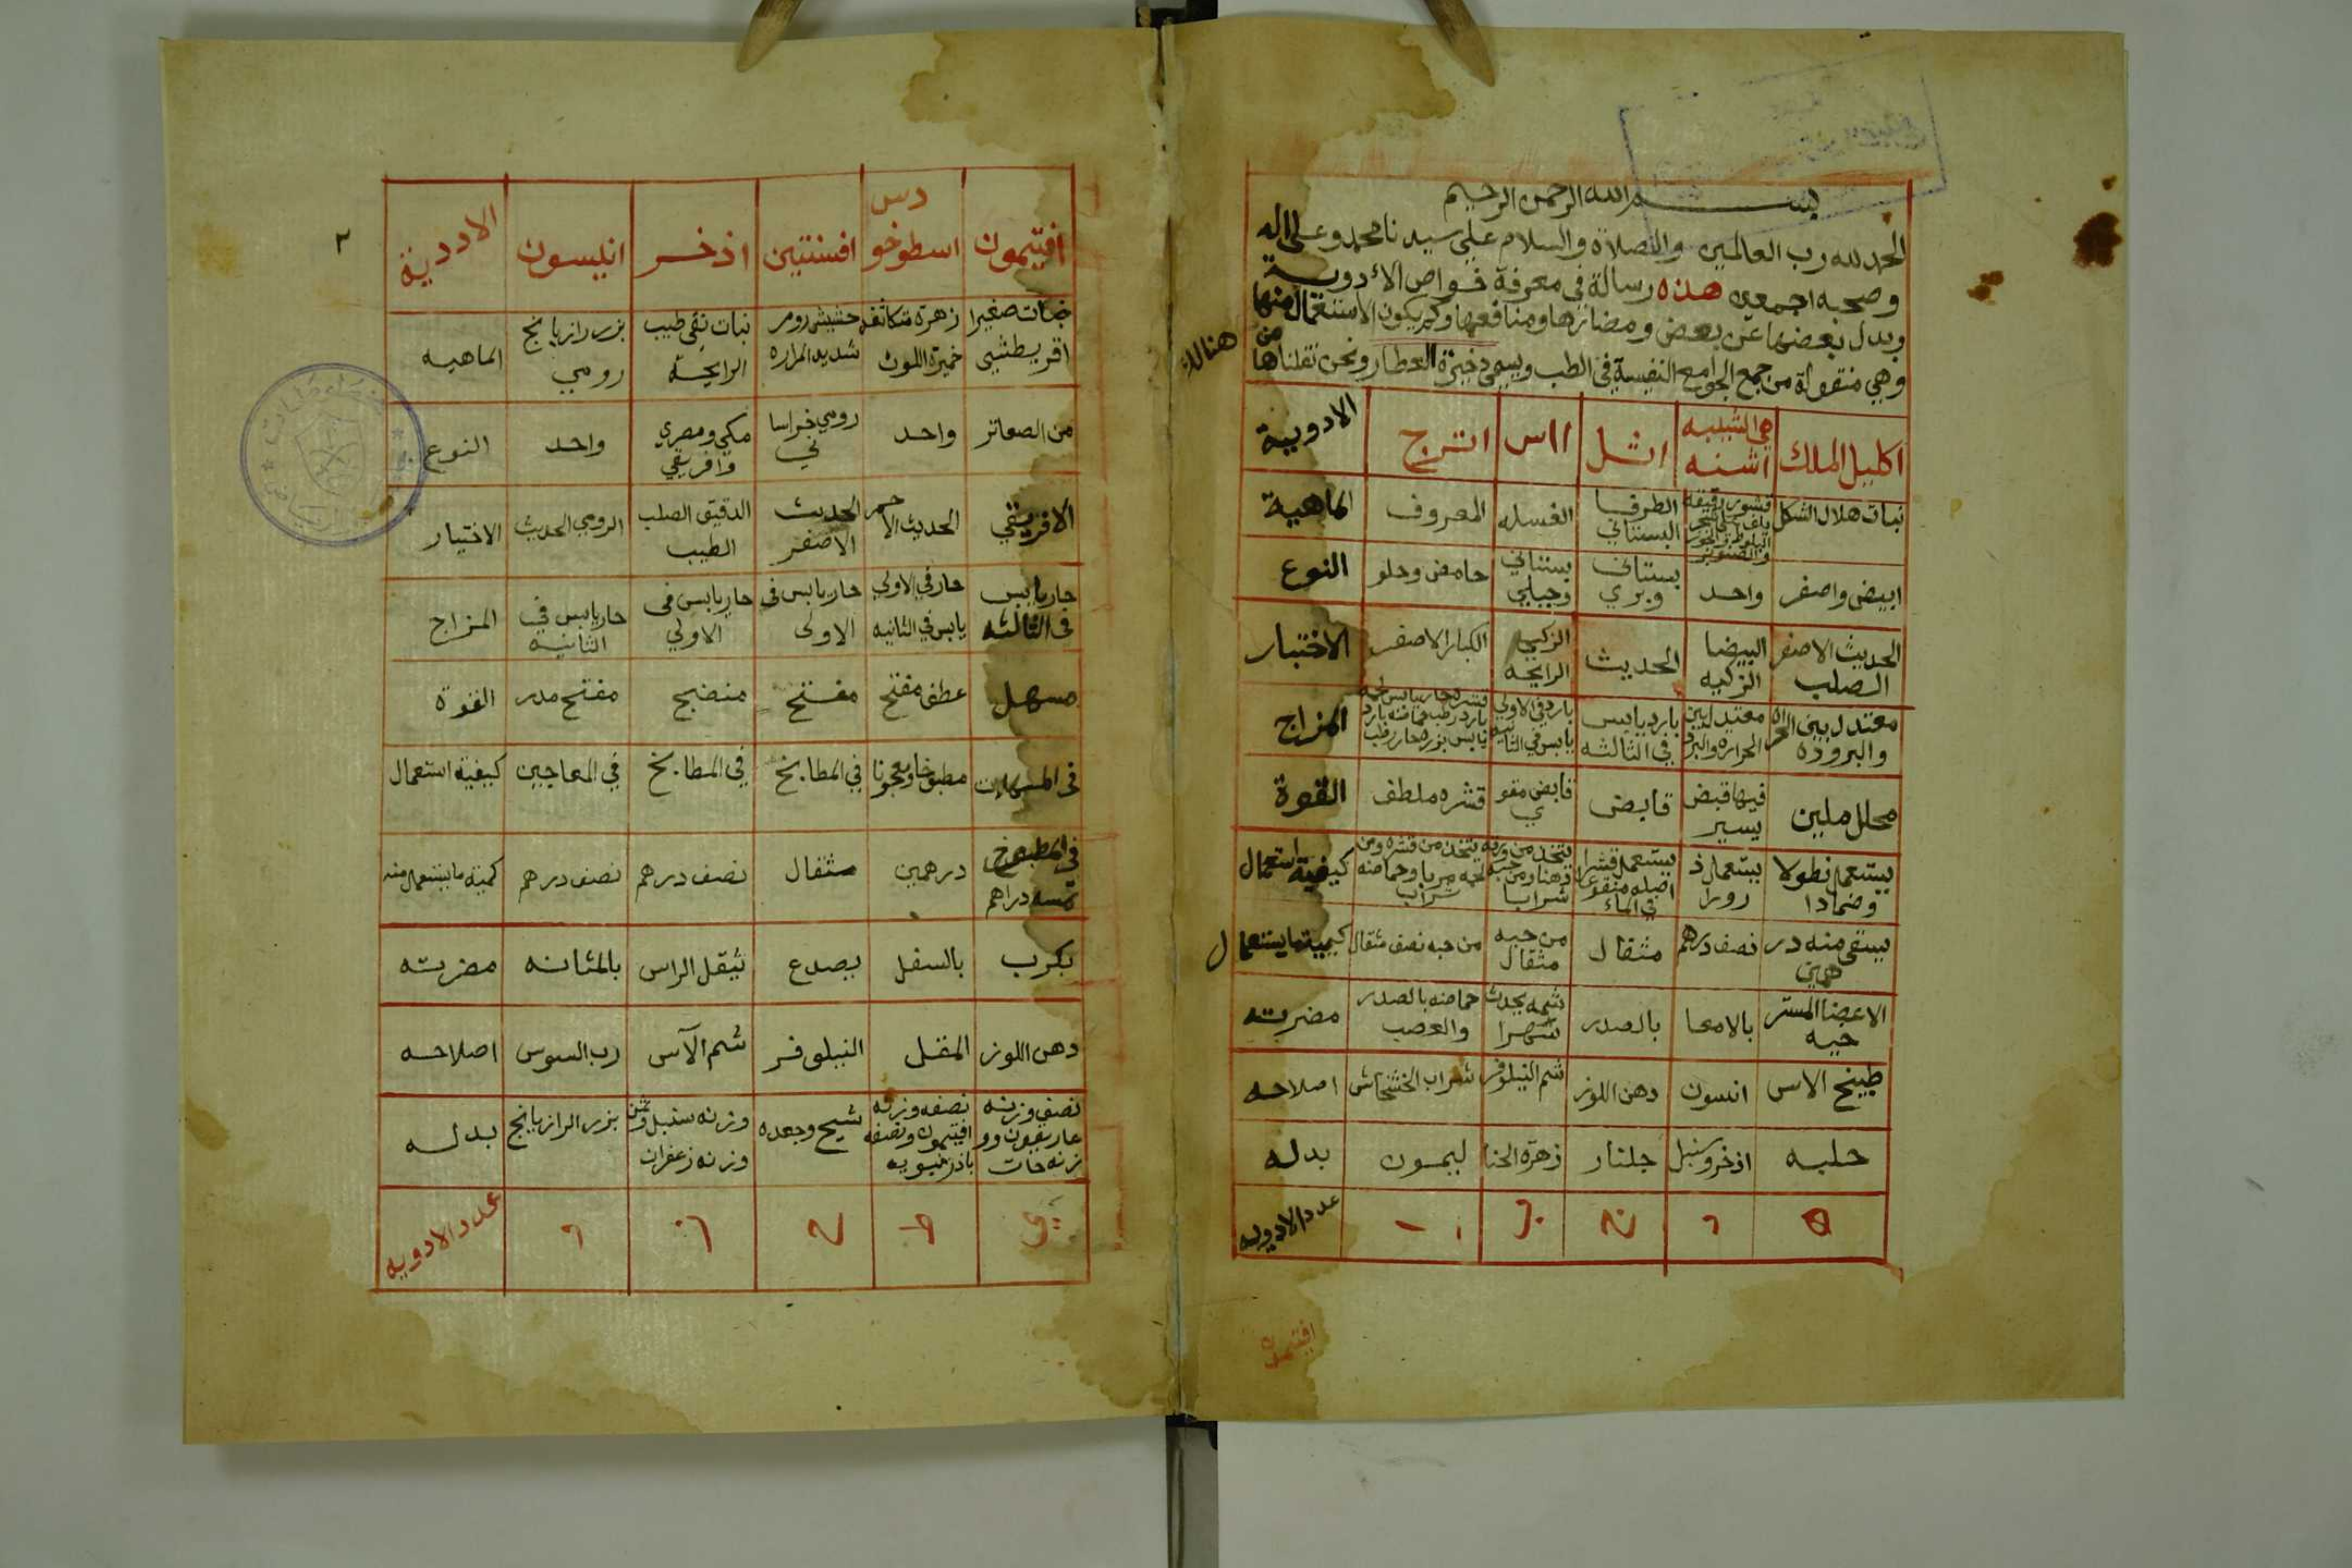 بسم الله الرحمن الرحيم
الحمد لله رب العالمين والصلاة والسلام علي سيدنا محمد وعلى اله
وصحبه اجمعين هذه رسالة في معرفة خواص الأدوية
وبدل بعضها عن بعض ومضارها ومنافعها وكم يكون الاستعمال منها
وهي منقولة من جمع الجوامع النفيسة في الطب ويسمى ذخيرة العطار ونحن نقلناها من هنالك
اكليل الملك | هي الشيبه اشنه | اثل | ااس | اترج | الادوية
نبات هلال الشكل | قشور رقيقه | الطرفا البستاني | الفسله | المعروف | الماهية
ابيض واصفر | واحد | بستاني وبري | بستاني وجبلي | حامض وحلو | النوع
الحديث الاصفر الصلب | البيضا الزكيه | الحديث | الزكي الرايحه | الكبار الاصفر | الاختيار
معتدل بين الحراه والبروده | معتدل بين الحراره والبرد | بارد يابس في الثالثه | بارد في الاولي يابس في الثانيه | المزاج
محلل ملين | فيها قبض يسير | قابض | قابض مقوي | قشره ملطف | القوة
يستعمل نطولا وضمادا | يستعمل ذرورا | يستعمل قشر اصله منقوعا في الماء | يتخذ من ورقه دهنا ومن حبه شرابا | يتخذ من قشره ومن لحمه مربا وحماضه شراب | كيفية استعمال
يسقى منه درهمين | نصف درهم | مثقال | من حبه مثقال | من حبه نصف مثقال | كيمية ما يستعمال
الاعضا المسترخيه | بالامعا | بالصدر | شمه يحدث سهرا | حماضه بالصدر والعصب | مضرته
طبيخ الاس | انسون | دهن اللوز | شم النيلوفر | شراب الخشخاش | اصلاحه
حلبه | اذخر وسنبل | جلنار | زهرة الحنا | ليمون | بدله
عدد الادويه
افتيمون
٢
افتيمون | اسطوخودس | افسنتين | اذخر | انيسون | الاددية
نبات صغير اقريطشي | زهرة متكاثفه خمرة اللون | حشيش رومر شديد المراره | نبات نقي طيب الرايحة | بزر رازيانج رومي | الماهيه
من الصعاتر | واحد | رومي خراساني | مكي ومصري وافريقي | واحد | النوع
الافريقي | الحديث الاحمر | الحديث الاصفر | الدقيق الصلب الطيب | الرومي الحديث | الاختيار
حار يابس في الثالثه | حار في الاولي يابس في الثانيه | حار يابس في الاولى | حار يابس في الاولي | حار يابس في الثانيه | المزاج
مسهل | مفتح | مفتح | منضج | مفتح مدر | القوة
في المسهلات | مطبوخا ومعجونا | في المطابخ | في المطابخ | في المعاجين | كيفية استعمال
في المطبوخ خمسه دراهم | درهمين | مثقال | نصف درهم | نصف درهم | كمية ما يستعمل منه
بكرب | بالسفل | يصدع | يثقل الراس | بالمثانه | مضرته
دهن اللوز | المقل | النيلوفر | شم الآس | رب السوس | اصلاحه
نصف وزنه | نصفه وزنه افتيمون ونصفه باذرنبويه | شيح وجعده | وزنه سنبل وثمن وزنه زعفران | بزر الرازيانج | بدله
عدد الادويه